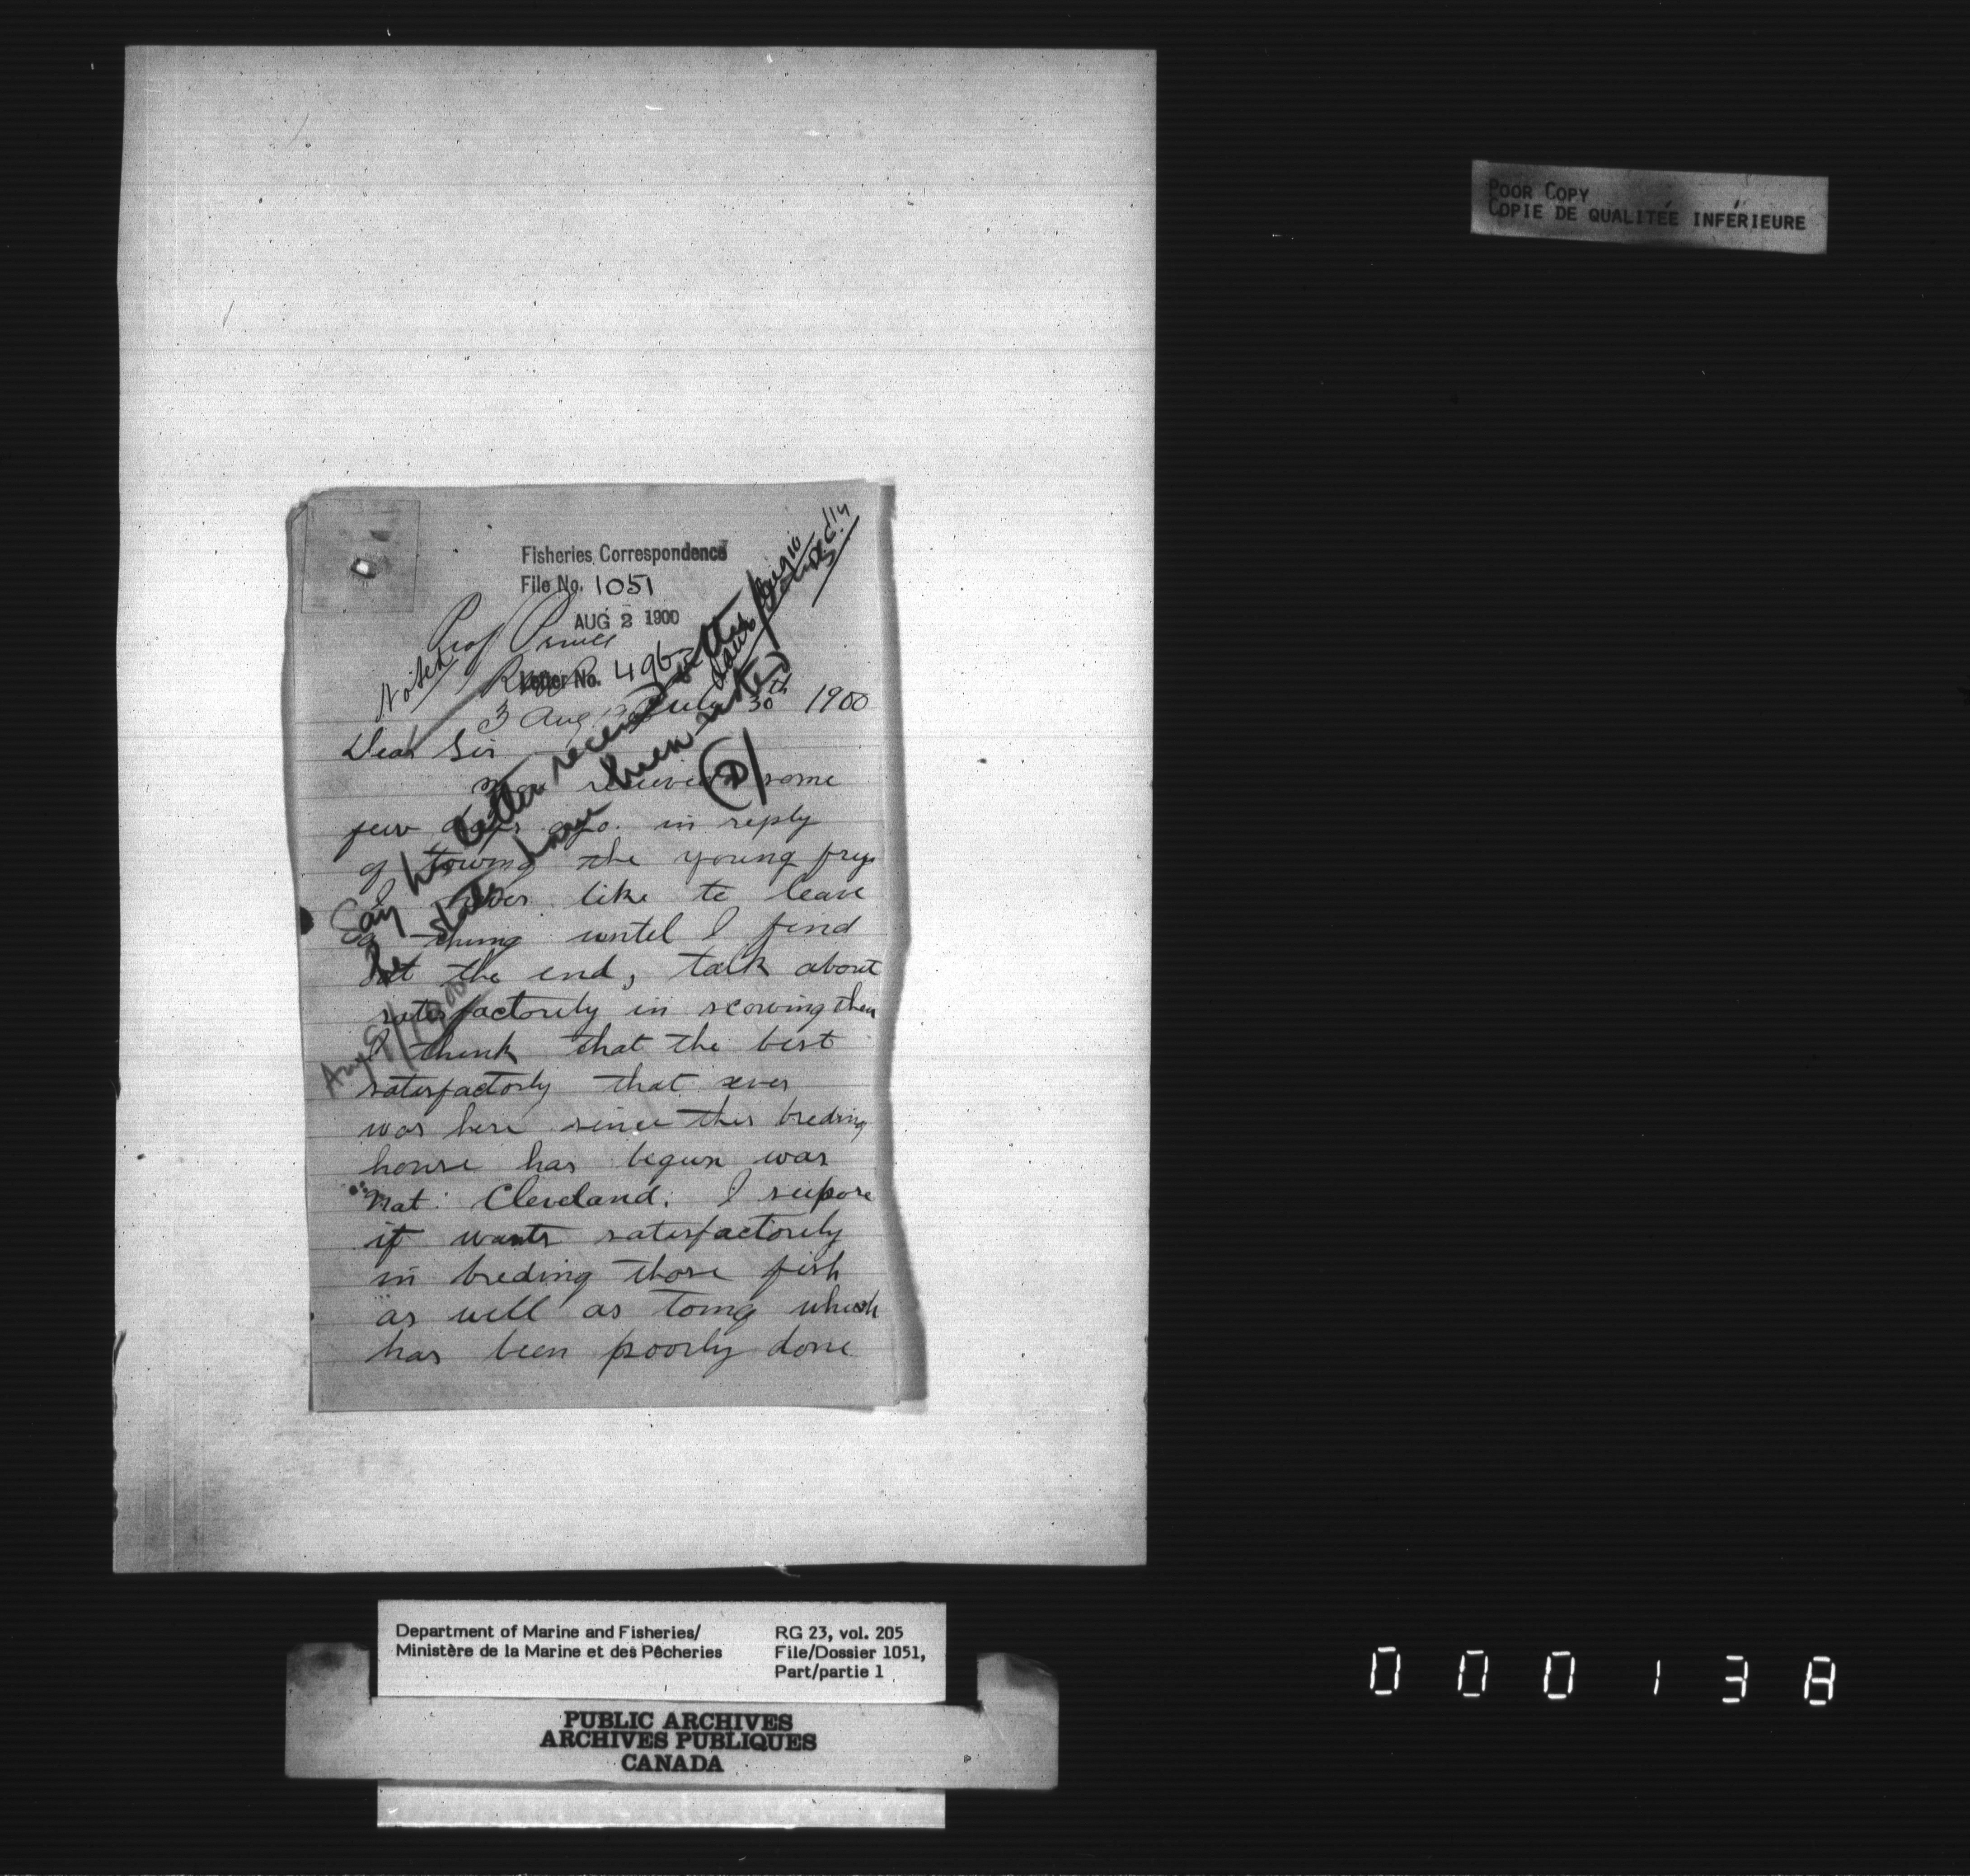 POOR COPY
COPIE DE QUALITÉE INFÉRIEURE
Fisheries Correspondence
File No. 1051
AUG 2 1900
Prof Prince
Noted
Letter No. 496
3 Aug
July 30th 1900
Dear Sir
received some
few days ago. in reply
of towing the young frys
I never like to leave
a thing untel I find
out the end, talk about
satesfactorely in scowing them
I think that the best
satesfactorly that ever
was here since this breding
house has begun was
Nat. Cleveland. I supose
if wants satesfactorely
in breding those fish
as well as toing which
has been poorly done
Say his letter received & the
he states have been noted
Department of Marine and Fisheries/
Ministère de la Marine et des Pêcheries
RG 23, vol. 205
File/Dossier 1051,
Part/partie 1
PUBLIC ARCHIVES
ARCHIVES PUBLIQUES
CANADA
000138